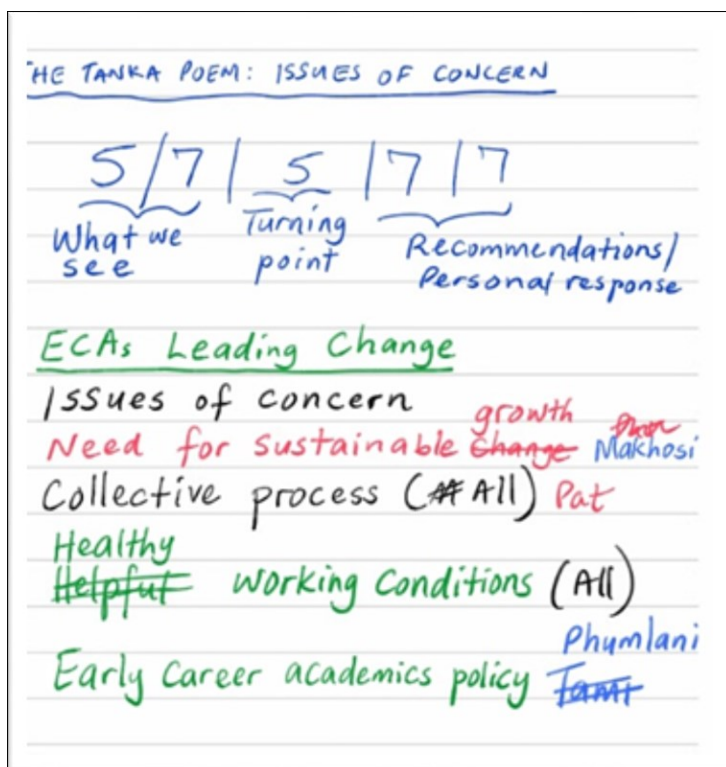 HE TANKA POEM: ISSUES OF CONCERN
5/7 | 5 | 7 | 7
What we see
Turning point
Recommendations/ Personal response
ECAs Leading Change
Issues of concern
growth
Need for sustainable Change Makhosi
Collective process (All) Pat
Healthy
Helpful working conditions (All)
Phumlani
Early Career academics policy Tami